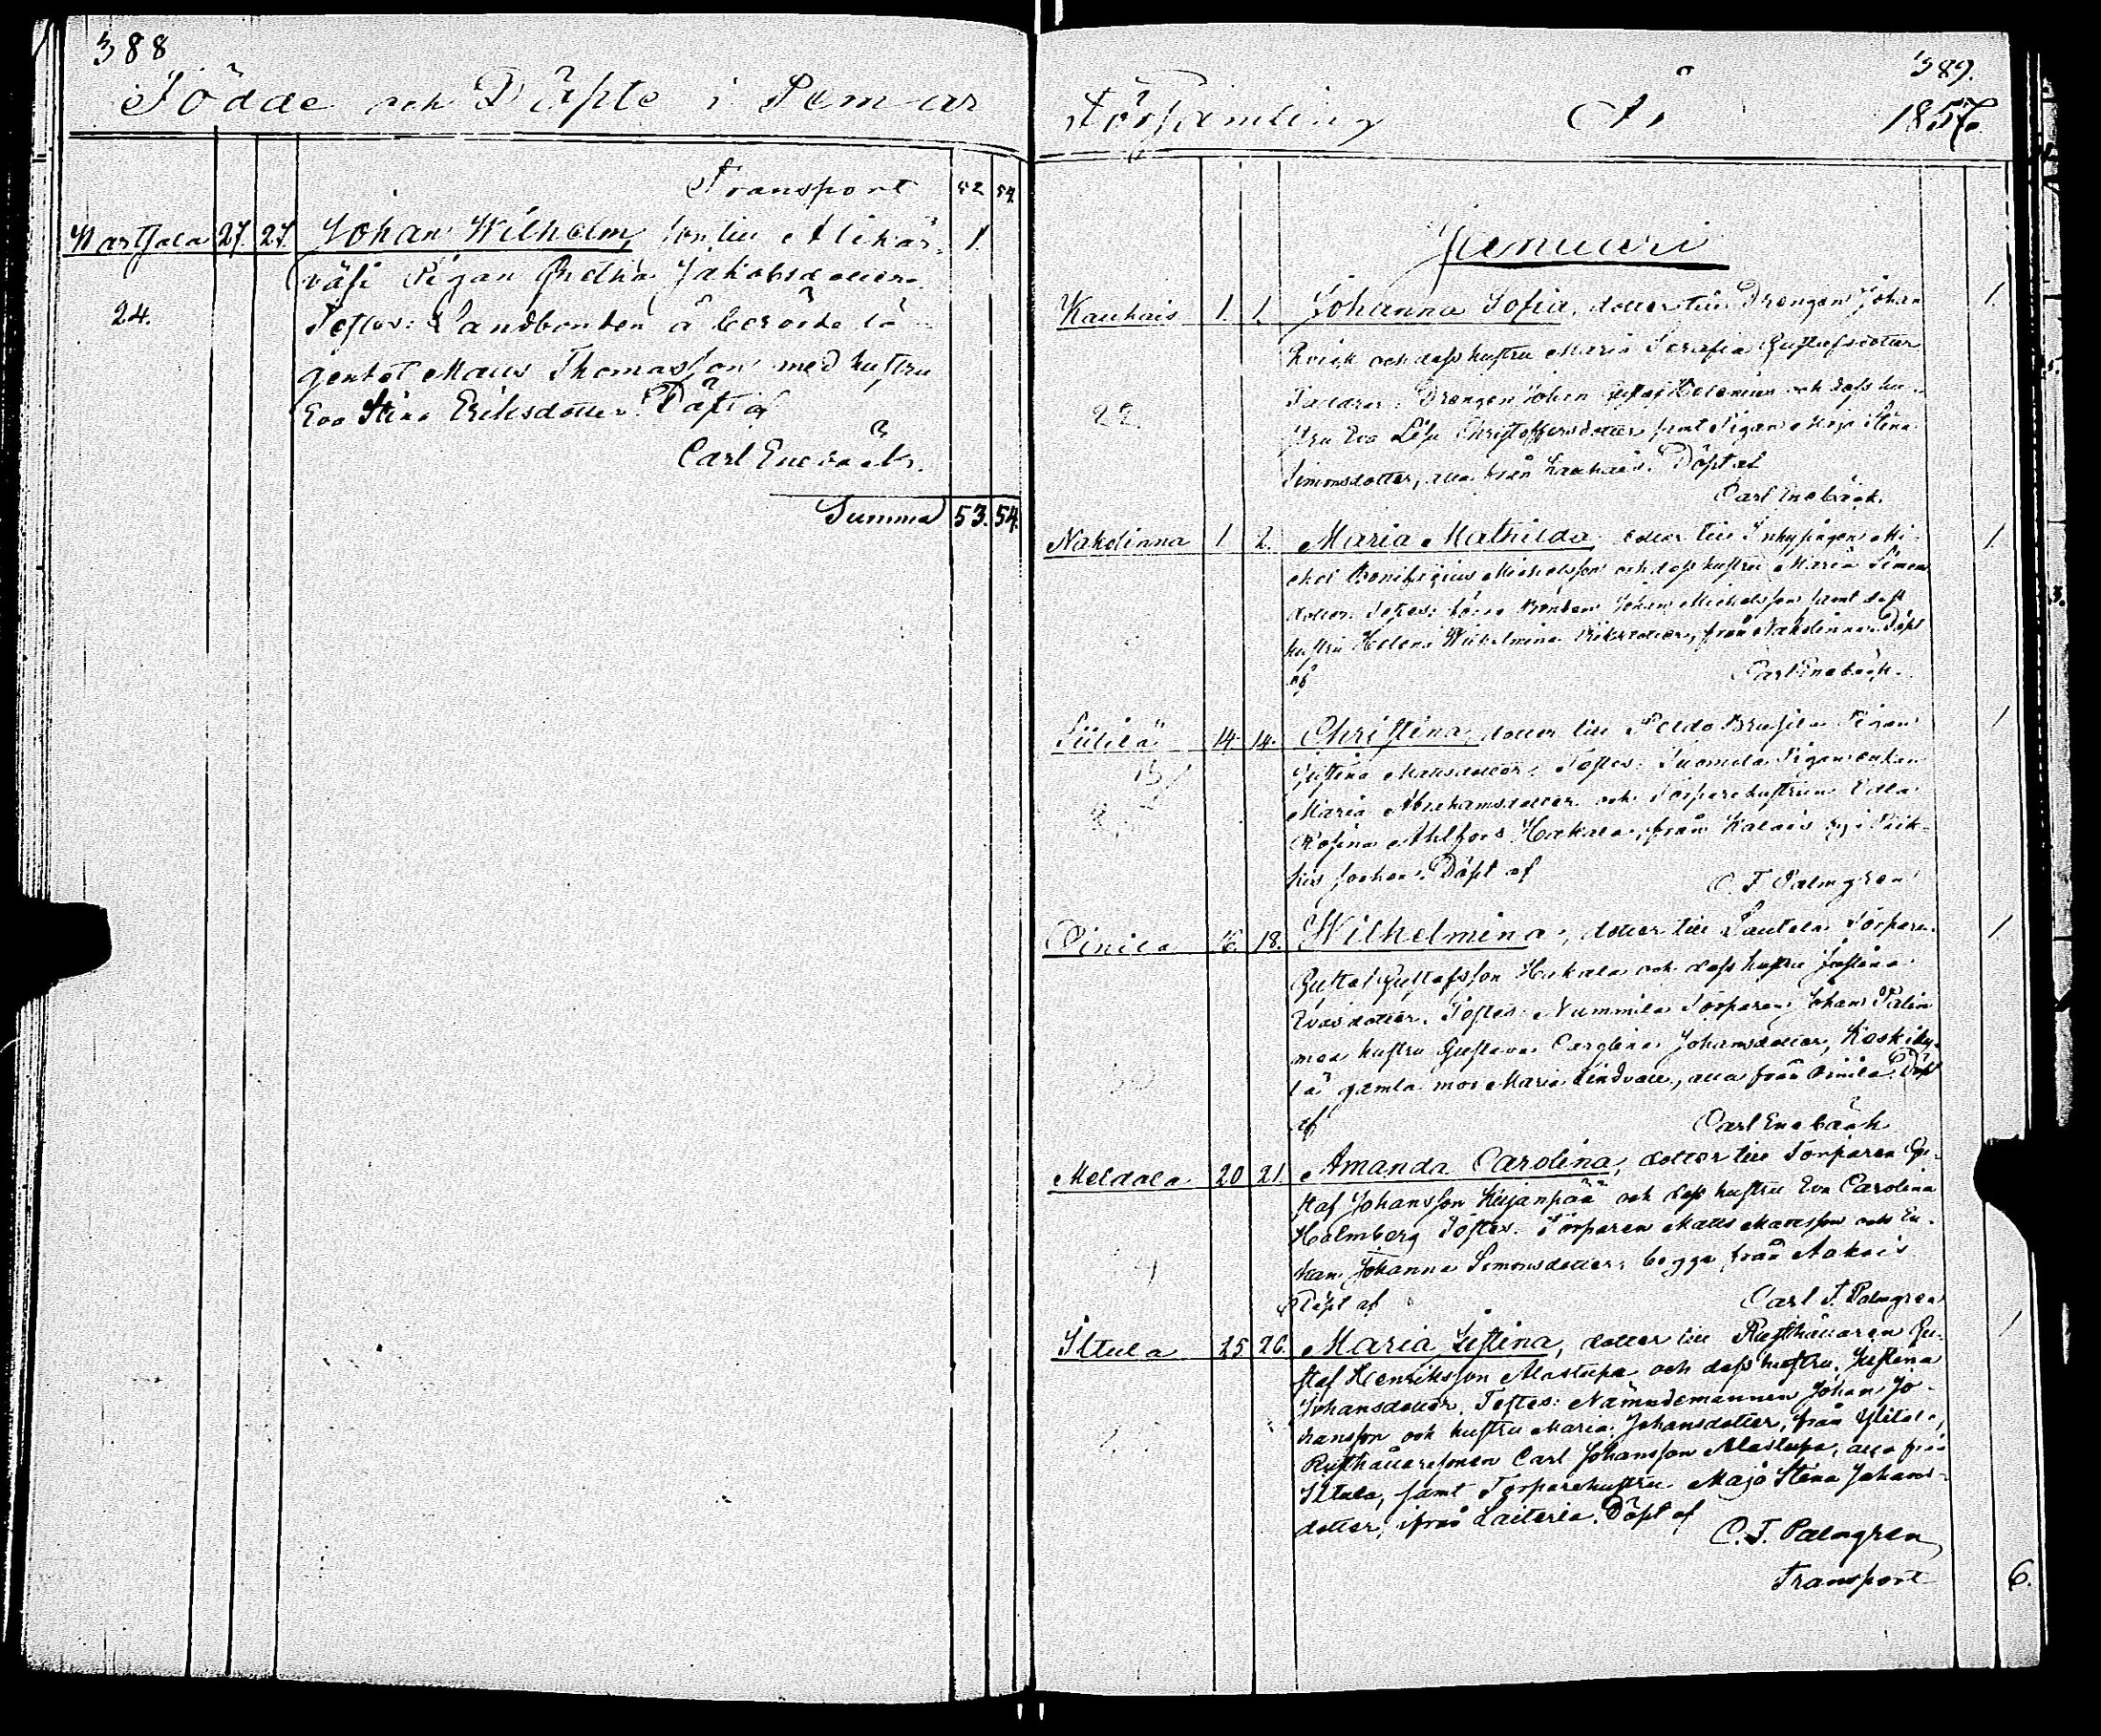 388
Födde och Döpte i Pemar
Transport 52 54.
Wartsala 27. 27. Johan Wilhelm, son till Alikär- 1.
väsi Pigan Gretha Jakobsdotter.
24. Testes: Landbonden å berörde lä-
genhet Matts Thomasson med hustru
Eva Stina Eriksdotter. Döpt af
Carl Enebäck.
Summa 53. 54.
389.
Församling År 1857.
Januari
Kauhais 1. 1. Johanna Sofia, dotter till Drengen Johan 1.
Qvick och dess hustru Maria Serafia Gustafsdotter
22 Faddrar: Drengen Johan Gustaf Helenius och dess hu-
stru Eva Lisa Christoffersdotter samt Pigan Maja Stina
Simonsdotter, alla från Kauhais. Döpt af
Carl Enebäck.
Nakolinna 1 2. Maria Mathilda, dotter till Inhysingen Mi- 1.
chel Bonifacius Michelsson och dess hustru Maria Simons
dotter. Testes: Bonden Johan Michelsson samt dess
hustru Helena Wilhelmina Eriksdotter, från Nakolinna. Döpt
af Carl Enebäck.
14. 14. Christina, dotter till Peldo Pigan 1
Justina Mattsdotter. Testes: Tuomola Piganenkan
Maria Abrahamsdotter och Torparehustrun Edla
Rosina Ahlfors Hakala, från Kalais by i Piik-
kis socken. Döpt af C. F. Palmgren
Oinila 16. 18. Wilhelmina, dotter till Lautela Torparen 1.
Gustaf Gustafsson Hakala och dess hustru Justina
Evasdotter. Testes: Nummila Torparen Johan Palin
med hustru Gustava Carolina Johansdotter, Koskiky-
lä gamla mor Maria Lindvall, alla från Oinila. Döpt
af Carl Enebäck
Meldola 20 21. Amanda Carolina, dotter till Torparen Gu-
staf Johansson Kujanpää och dess hustru Eva Carolina
Holmberg Testes. Torparen Matts Mattsson och En-
4 kan Johanna Simonsdotter, begge från Aakois
Döpt af Carl F. Palmgren
Iltula 25 26. Maria Justina, dotter till Rusthållaren Gu- 1
staf Henriksson Alastupa och dess hustru Justina
Johansdotter. Testes: Nämndemannen Johan Jo-
hansson och hustru Maria Johansdotter, från Ylitalo,
Rusthållaresonen Carl Johansson Alastupa, alla från
Iltula, samt Torparehustru Maja Stina Johans-
dotter, ifrån Laiterla. Döpt af
C. F. Palmgren
Transport 6.